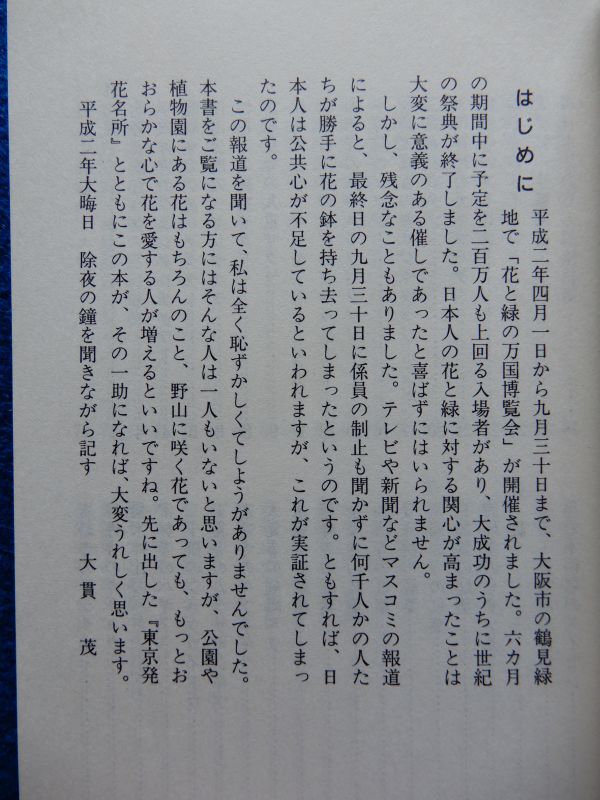 はじめに
平成二年四月一日から九月三十日まで、大阪市の鶴見緑
地で「花と緑の万国博覧会」が開催されました。六カ月
の期間中に予定を二百万人も上回る入場者があり、大成功のうちに世紀
の祭典が終了しました。日本人の花と緑に対する関心が高まったことは
大変に意義のある催しであったと喜ばずにはいられません。
しかし、残念なこともありました。テレビや新聞などマスコミの報道
によると、最終日の九月三十日に係員の制止も聞かずに何千人かの人た
ちが勝手に花の鉢を持ち去ってしまったというのです。ともすれば、日
本人は公共心が不足しているといわれますが、これが実証されてしまっ
たのです。
この報道を聞いて、私は全く恥ずかしくてしようがありませんでした。
本書をご覧になる方にはそんな人は一人もいないと思いますが、公園や
植物園にある花はもちろんのこと、野山に咲く花であっても、もっとお
おらかな心で花を愛する人が増えるといいですね。先に出した『東京発
花名所』とともにこの本が、その一助になれば、大変うれしく思います。
平成二年大晦日　除夜の鐘を聞きながら記す
大貫　茂